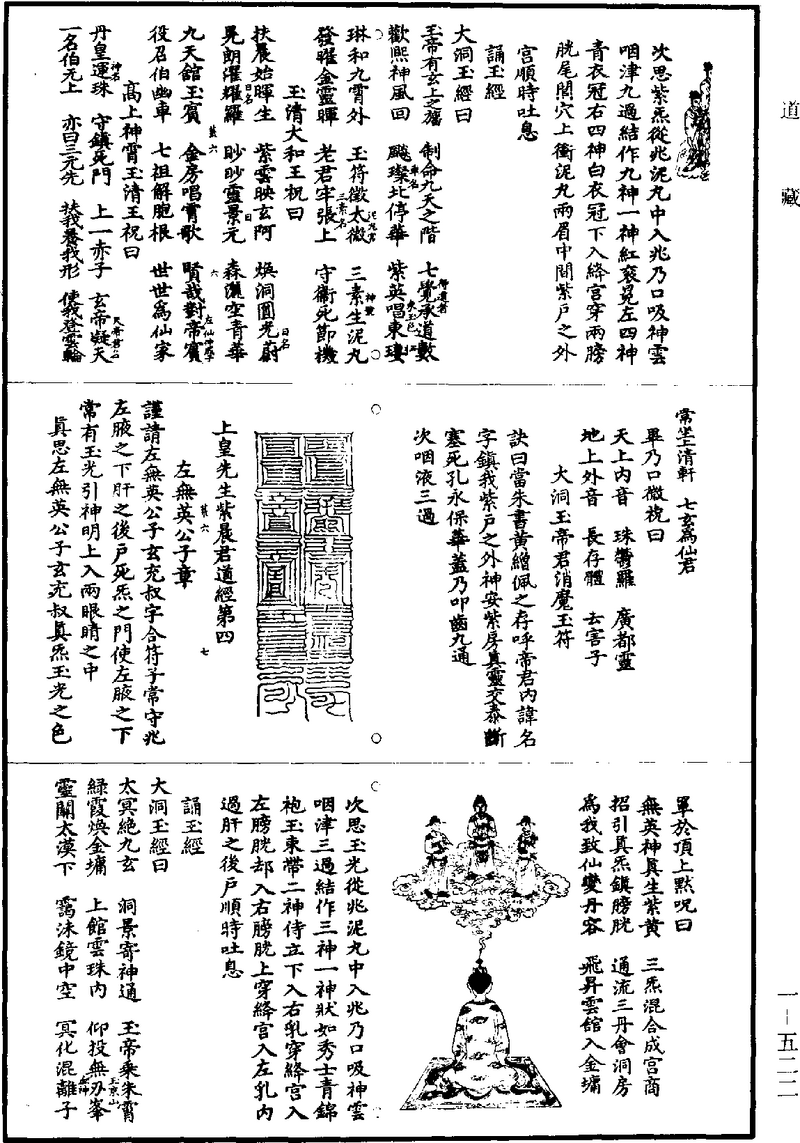 道藏
次思紫炁從兆泥丸中入兆乃口吸神雲
咽津九過結作九神一神紅衮冕左四神
青衣冠右四神白衣冠下入絳宮穿兩膀
胱尾閭穴上衝泥丸兩眉中間紫戶之外
宮順時吐息
誦玉經
大洞玉經曰
玉帝有玄上之 制命九天之階 七覺承道數
歡熙神風回 飈璨北停華 紫英唱東
琳和九霄外 玉符徵太微 三素生泥丸
發曜金靈暉 老君牢張上 守衞死節機
玉清大和王祝曰
扶晨始暉生 紫雲映玄阿 煥洞圓光蔚
晃朗濯耀羅 眇眇靈景元 森灑空青華
九天館玉賓 金房唱霄歌 賢哉對帝賓
役召伯幽車 七祖解胞根 世世為仙家
高上神霄玉清王祝曰
丹皇運珠 守鎮死門 上一赤子 玄帝凝天
一名伯无上 亦曰三元先 扶我養我形 使我登雲輪
常坐上清軒 七玄為仙君
畢乃口微祝曰
天上內音 珠鬱羅 廣都靈
地上外音 長存體 去害子
大洞玉帝君消魔玉符
訣曰當朱書黃繒佩之存呼帝君內諱名
字鎮我紫戶之外神安紫房真靈交泰斷
塞死孔永保華蓋乃叩齒九通
次咽液三過
上皇先生紫晨君道經第四
左無英公子章
謹請左無英公子玄充叔字合符子常守兆
左腋之下肝之後戶死炁之門使左腋之下
常有玉光引神明上入兩眼睛之中
真思左無英公子玄充叔真炁玉光之色
畢於頂上默呪曰
無英神真生紫黃 三炁混合成宮商
招引真炁鎮膀胱 通流三丹會洞房
為我致仙變丹容 飛昇雲館入金墉
次思玉光從兆泥丸中入兆乃口吸神雲
咽津三過結作三神一神狀如秀士青錦
袍玉束帶二神侍立下入右乳穿絳宮入
左膀胱却入右膀胱上穿絳宮入左乳內
過肝之後戶順時吐息
誦玉經
大洞玉經曰
太冥絕九玄 洞景寄神通 玉帝乘朱霄
綠霞煥金墉 上館雲珠內 仰投無刃峯
靈關太漠下 靄沫鏡中空 冥化混離子
一–五二二